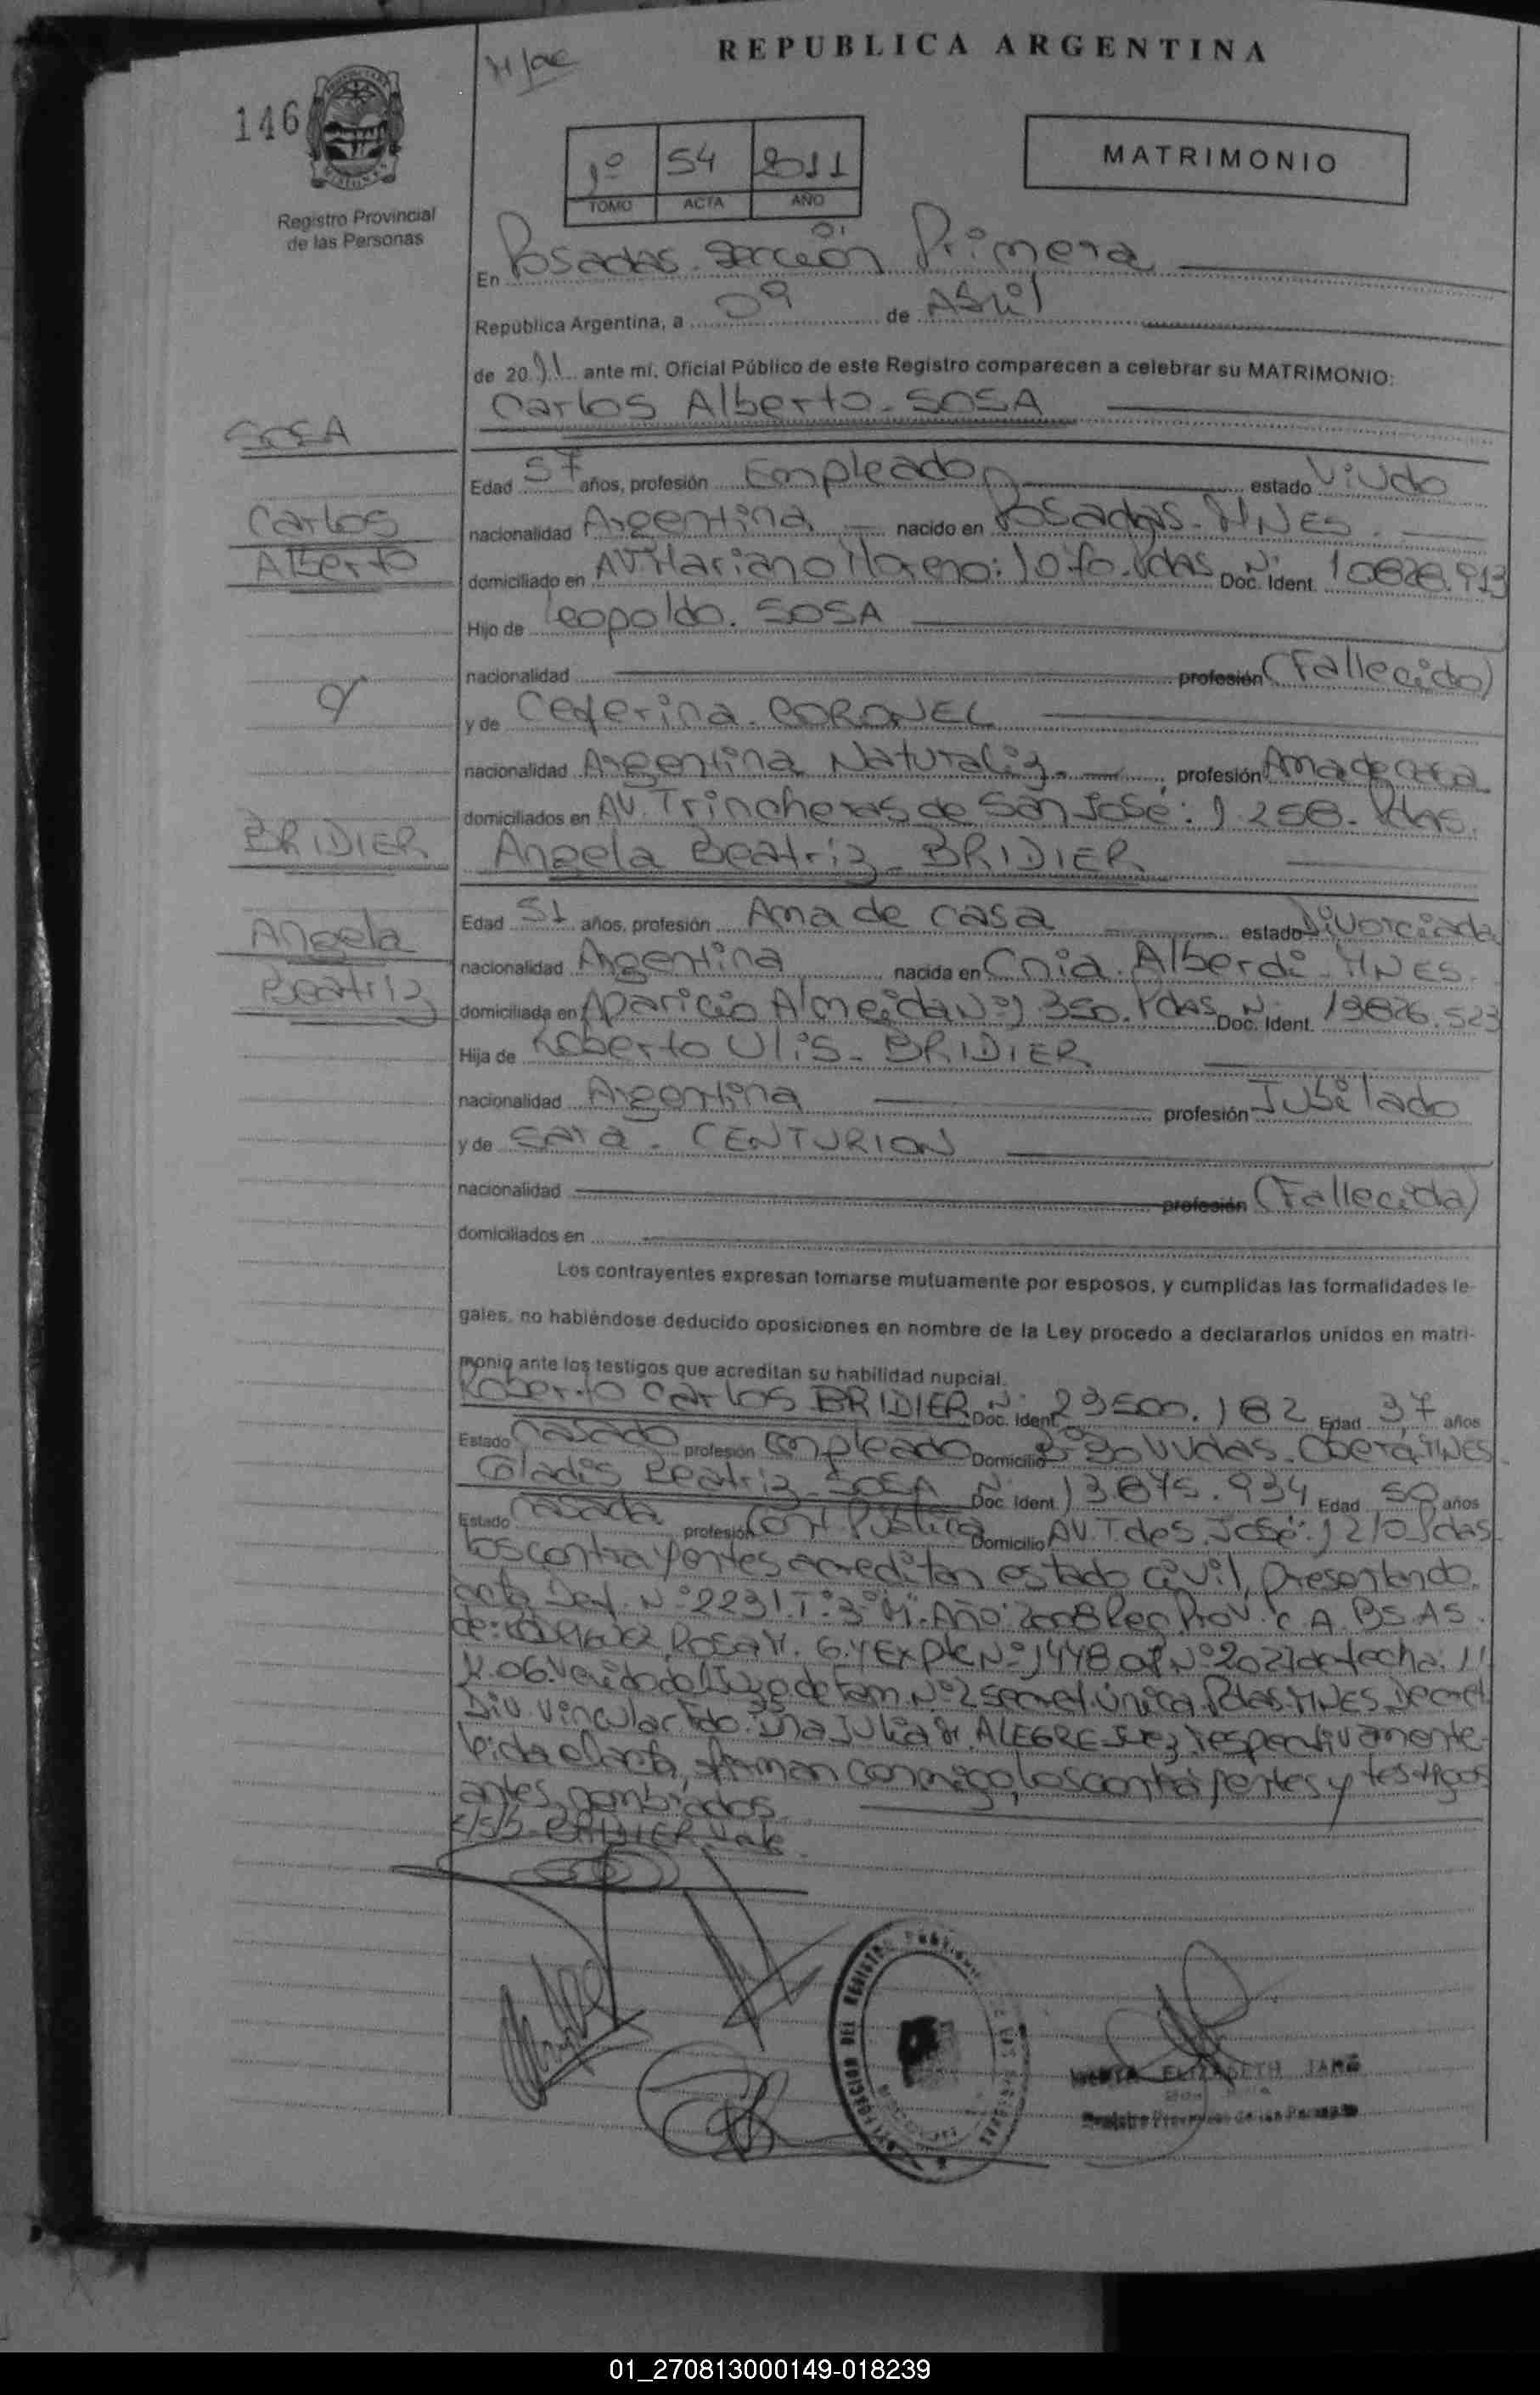 REPUBLICA ARGENTINA
146
1º 54 2011
TOMO ACTA AÑO
MATRIMONIO
Registro Provincial
de las Personas
En Posadas. Sección Primera
República Argentina, a 09 de Abril
de 2011 ante mí, Oficial Público de este Registro comparecen a celebrar su MATRIMONIO:
Carlos Alberto - SOSA
SOSA
Edad 57 años, profesión Empleado estado Viudo
Carlos
nacionalidad Argentina nacido en Posadas - MNES.
Alberto
domiciliado en AV. Mariano Moreno: Pdas Doc. Ident. Nº 10828.913
Hijo de Leopoldo. SOSA
nacionalidad profesión (Fallecido)
y de Ceferina. CORONEL
nacionalidad Argentina Naturaliz. profesión Ama de casa
domiciliados en AV. Trincheras de San José: 1.258 - Pdas.
BRIDIER
Angela Beatriz - BRIDIER
Edad 51 años, profesión Ama de casa estado Divorciada
Angela
nacionalidad Argentina nacida en Cnia. Alberdi - MNES.
Beatriz
domiciliada en Aparicio Almeida Nº 1.350. Pdas Doc. Ident. Nº 13826.523
Hija de Roberto Ulis - BRIDIER
nacionalidad Argentina profesión Jubilado
y de Sara - CENTURION
nacionalidad profesión (Fallecida)
domiciliados en
Los contrayentes expresan tomarse mutuamente por esposos, y cumplidas las formalidades le-
gales, no habiéndose deducido oposiciones en nombre de la Ley procedo a declararlos unidos en matri-
monio ante los testigos que acreditan su habilidad nupcial.
Roberto Carlos BRIDIER Doc. Ident. Nº 23500.182 Edad 37 años
Estado Casado profesión empleado Domicilio Vvdas. Oberá MNES
Gladis Beatriz - SOSA Nº Doc. Ident. 13.875.934 Edad 50 años
Estado Casada profesión Cont. Pública Domicilio AV. T. de S. José: 1210 Pdas
Los contrayentes acreditan estado civil, presentando
acta Def. Nº 2231. Tº 3º "M". Año: 2008 Reg. Prov. C. A. BS. AS.
de: ROSA M. G. Y Expte Nº 1448 Of Nº 2021 de fecha: 11
de Fam. Nº 2 Secret. única. Pdas MNES. Decret
Div. Vincular Fdo. Julia ALEGRE Juez, respectivamente.
Leída el acta, firman conmigo, los contrayentes y testigos
antes nombrados.
E/S/b - BRIDIER Vale
ELIZABETH
Registro Provincial de las Personas
01_270813000149-018239